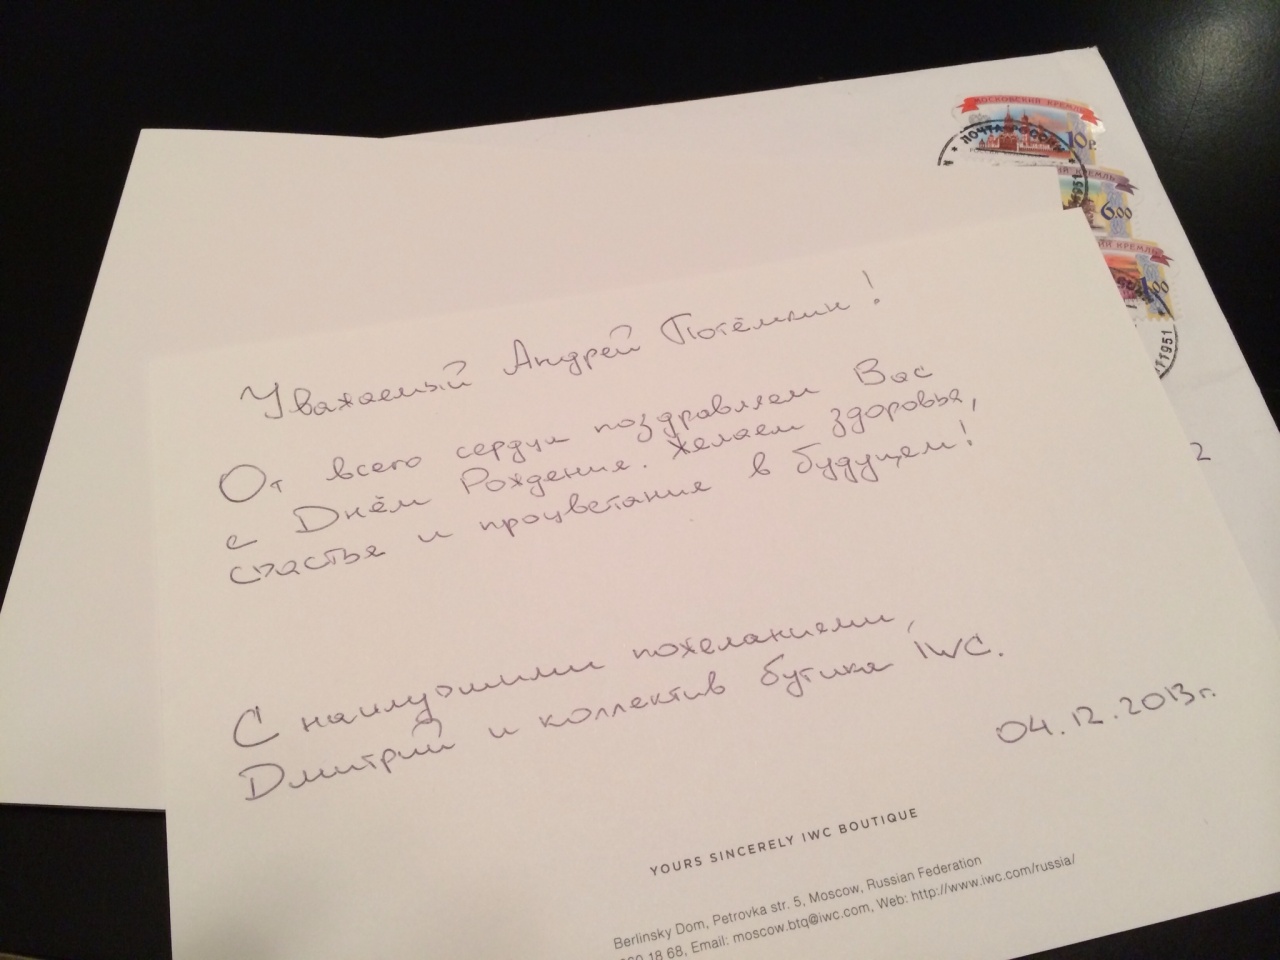 МОСКОВСКИЙ КРЕМЛЬ
ПОЧТА РОССИИ
10 Р
КРЕМЛЬ
6.00
КРЕМЛЬ
1951
2
Уважаемый Андрей Потёмкин!
От всего сердца поздравляем Вас
с Днём Рождения. Желаем здоровья,
счастья и процветания в будущем!
С наилучшими пожеланиями,
Дмитрий и коллектив бутика IWC.
04.12.2013г.
YOURS SINCERELY IWC BOUTIQUE
Berlinsky Dom, Petrovka str. 5, Moscow, Russian Federation
18 68, Email: moscow.btq@iwc.com, Web: http://www.iwc.com/russia/